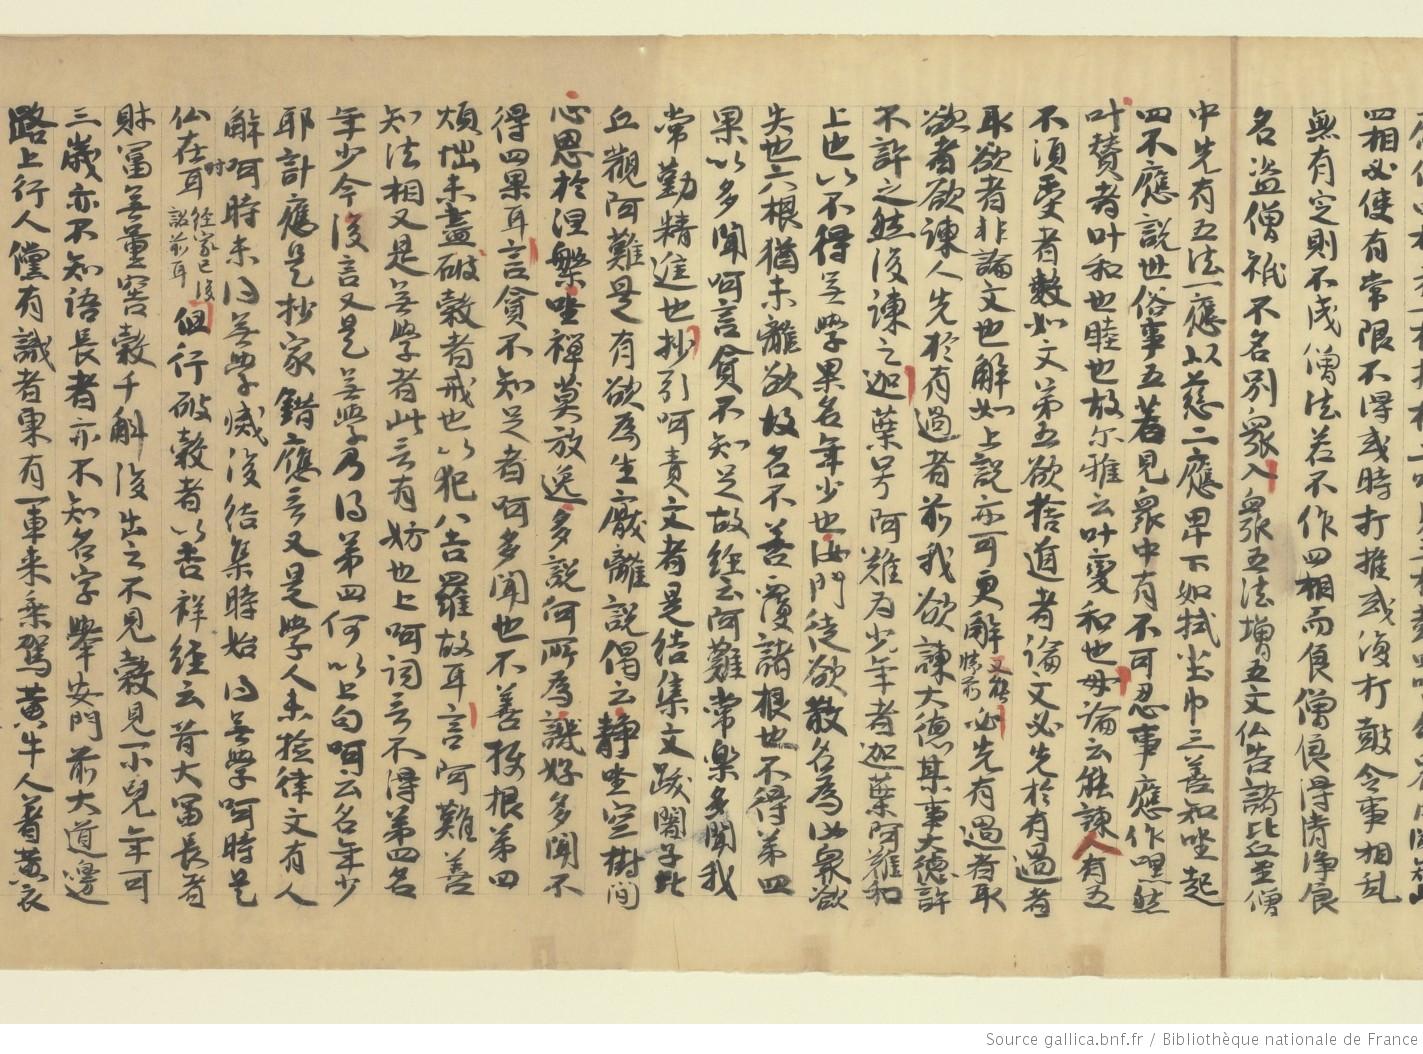 四相必使有常限不得或時打推或復打鼓令事相乱
無有定則不成僧法若不作四相而食僧食得清淨食
名盗僧祇不名別衆入衆五法增五文仏告諸比丘至僧
中先有五法一應以慈二應卑下如拭塵巾三善知坐起
四不應說世俗事五若見衆中有不可忍事應作嘿然
叶賛者叶和也睦也故尒雅云叶燮和也母論云能諫人有五
不須受者數如文弟五欲捨道者論文必先於有過者
取欲者非論文也解如上說亦可更解又解 必先有過者取
欲者欲諫人先於有過者前我欲諫大德某事大德許
不許之然後諫之迦葉号阿難为少年者迦葉阿難和
上也以不得无學果名年少也汝門徒欲散名為汝衆欲
失也六根猶未離欲故名不善覆諸根也不得弟四
果以多聞呵言貪不知足故經云阿難常樂多聞我
常勤精進也抄引呵責文者是結集文跋闍子比
丘觀阿難是有欲為生厭離說偈云靜坐空樹間
心思於涅槃坐禅莫放逸多說何所為誠好多聞不
得四果耳言貪不知足者呵多聞也不善攝根弟四
煩惱未盡破轂者戒也以犯八吉羅故耳言阿難善
知法相又是无學者此言有妨也上呵詞言不得弟四名
年少今後言又是无學乃得弟四何以上句呵云名年少
耶計應是抄家錯應言又是學人未撿律文有人
解呵時未得无學滅後結集時始得无學呵時是
仏在時耳 經家已後 說前耳 但行破轂者以吉祥經云昔大冨長者
財冨无量窖穀千斛後出之不見穀見一小兒年可
三歲亦不知語長者亦不知名字舉安門前大道邊
路上行人儻有識者東有一車来乘駕黄牛人著黄衣